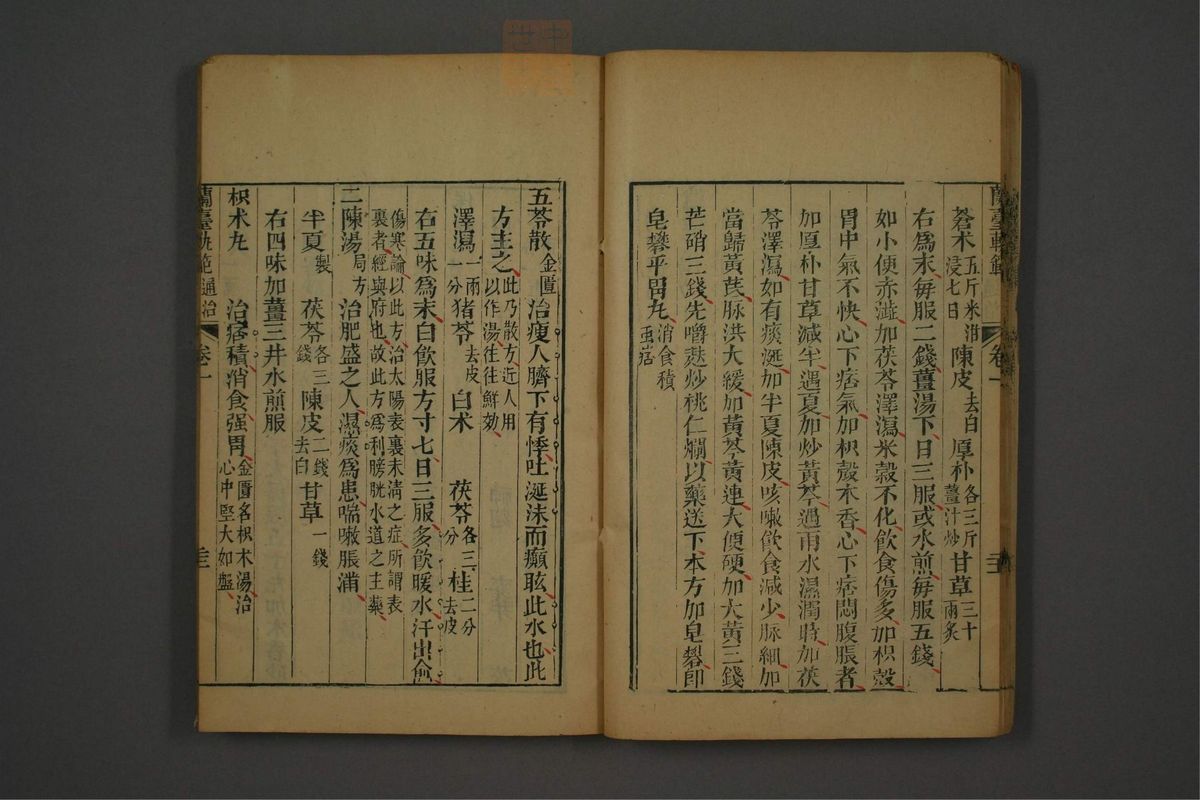 蘭臺軌範 卷一
蒼朮五斤米泔浸七日 陳皮去白 厚朴各三斤薑汁炒 甘草三十兩炙
右爲末每服二錢薑湯下日三服或水煎每服五錢
如小便赤澁加茯苓澤瀉米穀不化飲食傷多加枳殼
胃中氣不快心下痞氣加枳殼木香心下痞悶腹脹者
加厚朴甘草減半遇夏加炒黃芩遇雨水濕潤時加茯
苓澤瀉如有痰涎加半夏陳皮咳嗽飲食減少脉細加
當歸黃芪脉洪大緩加黃芩黃連大便硬加大黃三錢
芒硝三錢先嚼麩炒桃仁爛以藥送下本方加皂礬卽
皂礬平胃丸消食積虫痞
五苓散金匱 治瘦人臍下有悸吐涎沫而癲眩此水也此
方主之此乃散方近人用以作湯往往鮮効
澤瀉一兩一分 猪苓去皮 白朮 茯苓各三分 桂二分去皮
右五味爲末白飲服方寸七日三服多飲暖水汗出愈
傷寒論以此方治太陽表裏未清之症所謂表裏者經與府也故此方爲利膀胱水道之主藥
二陳湯局方 治肥盛之人濕痰爲患喘嗽脹滿
半夏製 茯苓各三錢 陳皮二錢去白 甘草一錢
右四味加薑三片水煎服
枳朮丸 治痞積消食强胃金匱名枳朮湯治心中堅大如盤
蘭臺軌範 通治 卷一